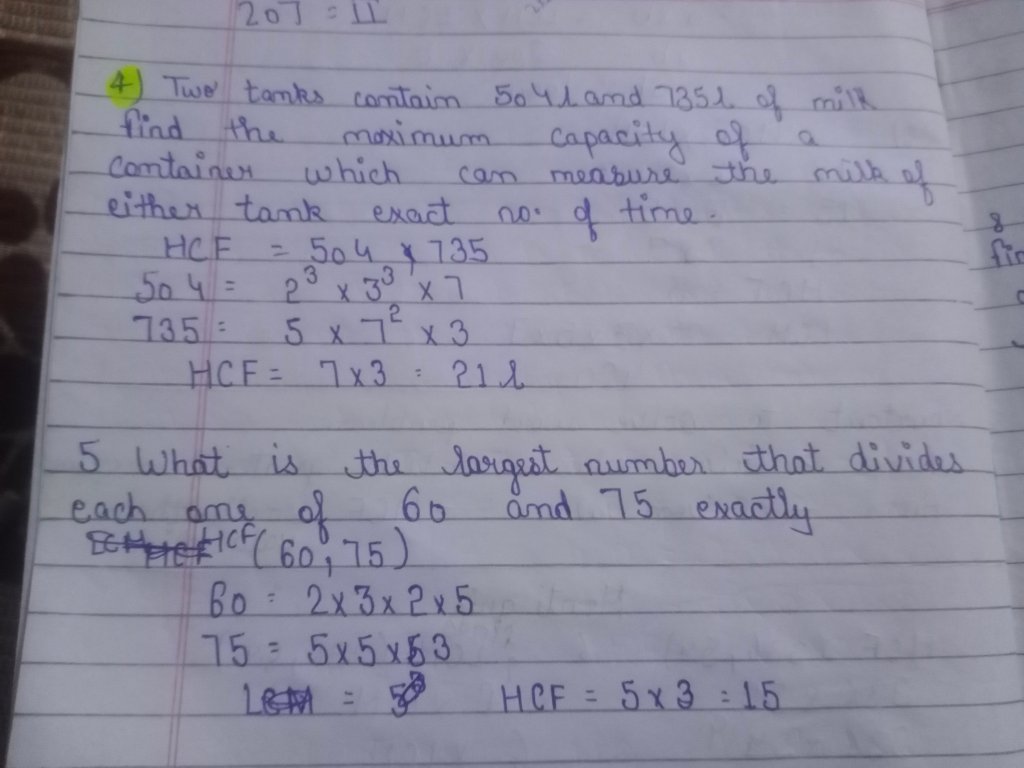 207 = 11
4) Two tanks contain 504 l and 735 l of milk
find the maximum capacity of a
container which can measure the milk of
either tank exact no. of time.
HCF = 504, 735
504 = 2³ x 3³ x 7
735 = 5 x 7² x 3
HCF = 7x3 = 21 l
5 What is the largest number that divides
each one of 60 and 75 exactly
HCF (60, 75)
60 = 2x3x2x5
75 = 5x5x3
= HCF = 5x3 = 15
8
fin